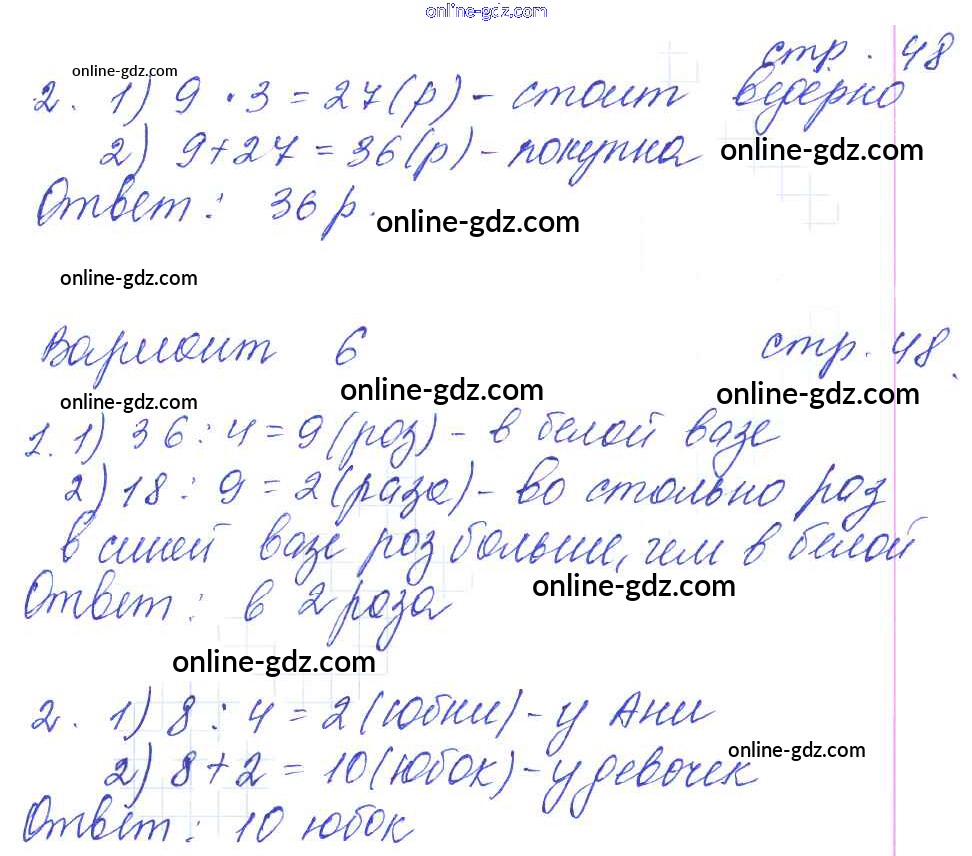 online-gdz.com
стр. 48
online-gdz.com
2. 1) 9 · 3 = 27(р) - стоит ведёрко
2) 9+27 = 36(р) - покупка online-gdz.com
Ответ: 36 р. online-gdz.com
online-gdz.com
Вариант 6 стр. 48.
online-gdz.com online-gdz.com
online-gdz.com
1. 1) 36 : 4 = 9 (роз) - в белой вазе
2) 18 : 9 = 2 (раза) - во столько раз
в синей вазе роз больше, чем в белой
Ответ: в 2 раза online-gdz.com
online-gdz.com
2. 1) 8 : 4 = 2 (юбки) - у Ани
online-gdz.com
2) 8 + 2 = 10 (юбок) - у девочек
Ответ: 10 юбок